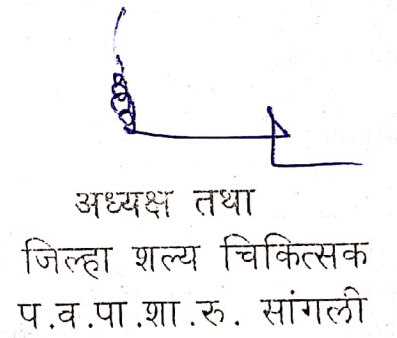 अध्यक्ष तथा
जिल्हा शल्य चिकित्सक
प.व.पा.शा.रु. सांगली